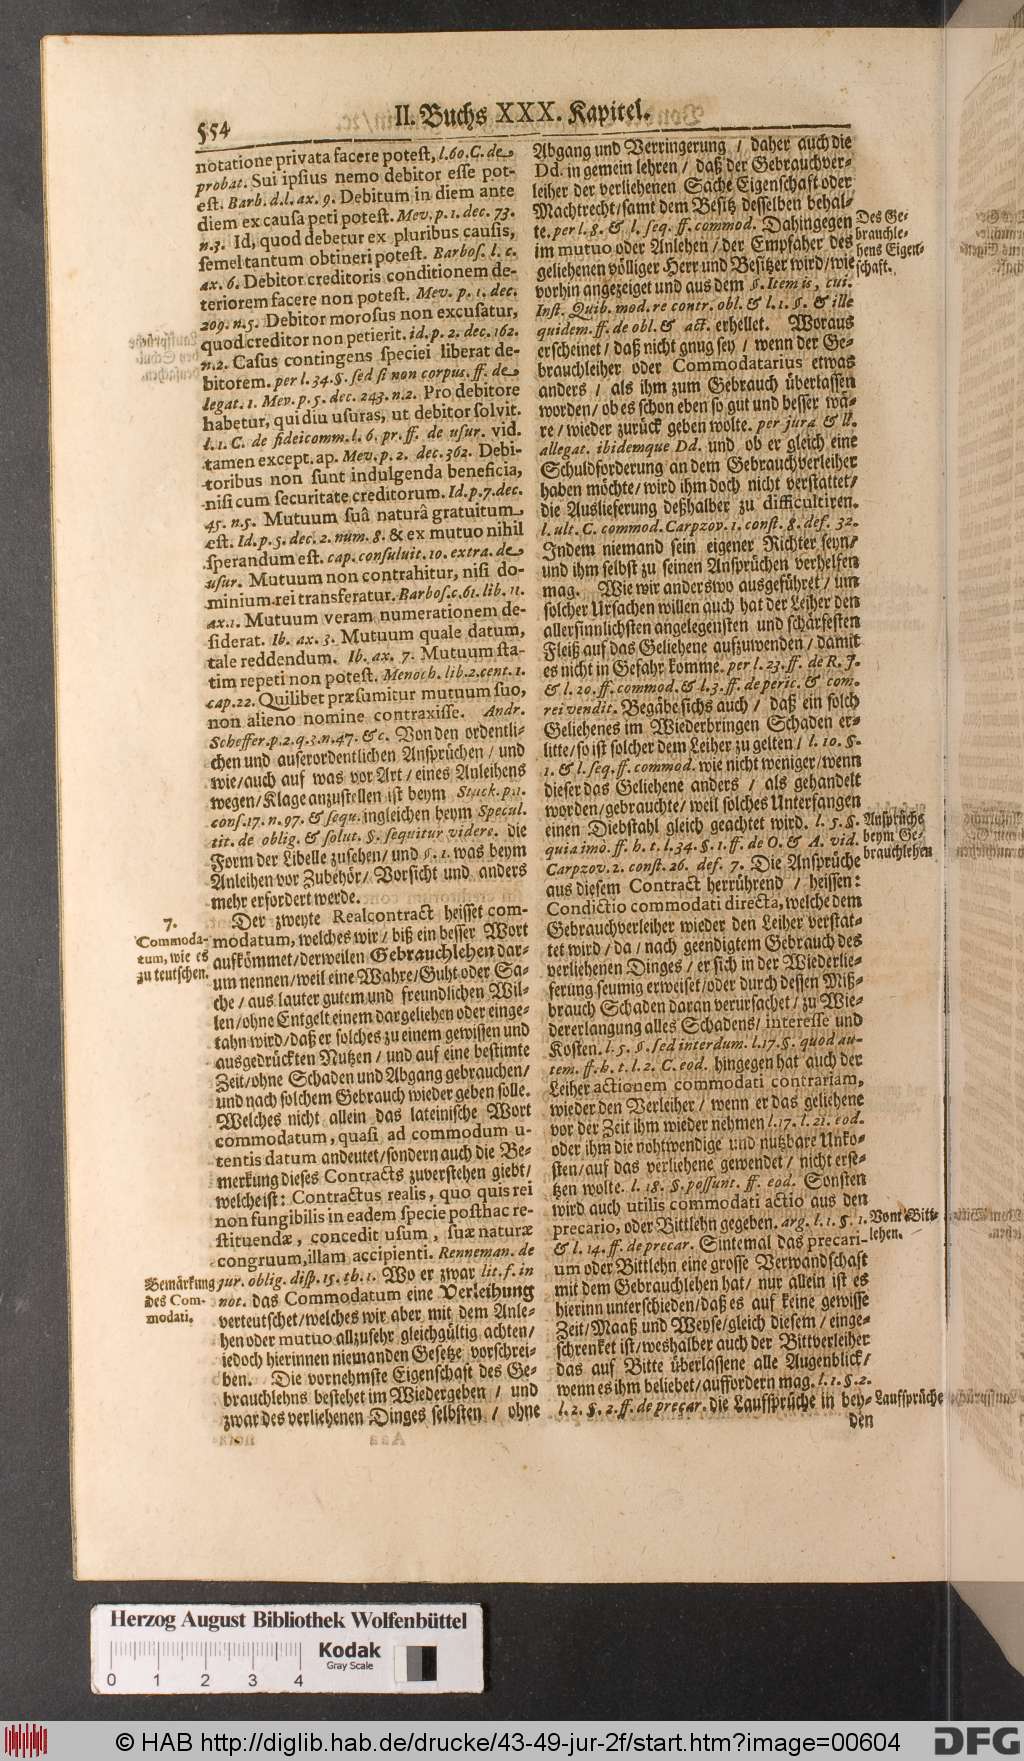 554
II. Buchs XXX. Kapitel.
notatione privata facere potest, l. 60. C. de
probat. Sui ipsius nemo debitor esse pot-
est. Barb. d. l. ax. 9. Debitum in diem ante
diem ex causa peti potest. Mev. p. 1. dec. 73.
n. 3. Id, quod debetur ex pluribus causis,
semel tantum obtineri potest. Barbos. l. c.
ax. 6. Debitor creditoris conditionem de-
teriorem facere non potest. Mev. p. 1. dec.
209. n. 5. Debitor morosus non excusatur,
quod creditor non petierit. id. p. 2. dec. 162.
n. 2. Casus contingens speciei liberat de-
bitorem. per l. 34. §. sed si non corpus. ff. de
legat. 1. Mev. p. 5. dec. 243. n. 2. Pro debitore
habetur, qui diu usuras, ut debitor solvit.
l. 1. C. de fideicomm. l. 6. pr. ff. de usur. vid.
tamen except. ap. Mev. p. 2. dec. 362. Debi-
toribus non sunt indulgenda beneficia,
nisi cum securitate creditorum. Id. p. 7. dec.
45. n. 5. Mutuum suâ naturâ gratuitum
est. Id. p. 5. dec. 2. num. 8. & ex mutuo nihil
sperandum est. cap. consuluit. 10. extra. de
usur. Mutuum non contrahitur, nisi do-
minium rei transferatur. Barbos. c. 61. lib. 11.
ax. 1. Mutuum veram numerationem de-
siderat. Ib. ax. 3. Mutuum quale datum,
tale reddendum. Ib. ax. 7. Mutuum sta-
tim repeti non potest. Menoch. lib. 2. cent. 1.
cap. 22. Quilibet præsumitur mutuum suo,
non alieno nomine contraxisse. Andr.
Scheffer. p. 2. q. 3. n. 47. &c. Von den ordentli-
chen und auserordentlichen Ansprüchen / und
wie / auch auf was vor Art / eines Anleihens
wegen / Klage anzustellen ist beym Stuck. p. 1.
cons. 17. n. 97. & sequ. ingleichen beym Specul.
tit. de oblig. & solut. §. sequitur videre. die
Form der Libelle zusehen / und §. 1. was beym
Anleihen vor Zubehör / Vorsicht und anders
mehr erfordert werde.
7.
Commoda-
tum, wie es
zu teutschen.
Der zweyte Realcontract heisset com-
modatum, welches wir / biß ein besser Wort
aufkömmet / derweilen Gebrauchlehen dar-
um nennen / weil eine Wahre / Guht oder Sa-
che / aus lauter gutem und freundlichen Wil-
len / ohne Entgelt einem dargeliehen oder einge-
tahn wird / daß er solches zu einem gewissen und
ausgedrückten Nutzen / und auf eine bestimte
Zeit / ohne Schaden und Abgang gebrauchen /
und nach solchem Gebrauch wieder geben solle.
Welches nicht allein das lateinische Wort
commodatum, quasi ad commodum u-
tentis datum andeutet / sondern auch die Be-
merkung dieses Contracts zuverstehen giebt /
welche ist: Contractus realis, quo quis rei
non fungibilis in eadem specie posthac re-
stituendæ, concedit usum, suæ naturæ
congruum, illam accipienti. Renneman. de
Bemärkung
des Com-
modati.
jur. oblig. disp. 15. th. 1. Wo er zwar lit. f. in
not. das Commodatum eine Verleihung
verteutschet / welches wir aber mit dem Anle-
hen oder mutuo allzusehr gleichgültig achten /
jedoch hierinnen niemanden Gesetze vorschrei-
ben. Die vornehmste Eigenschaft des Ge-
brauchlehns bestehet im Wiedergeben / und
zwar des verliehenen Dinges selbsten / ohne
Abgang und Verringerung / daher auch die
Dd. in gemein lehren / daß der Gebrauchver-
leiher der verliehenen Sache Eigenschaft oder
Machtrecht / samt dem Besitz desselben behal-
te. per l. 8. & l. seq. ff. commod. Dahingegen
im mutuo oder Anlehen / der Empfaher des
geliehenen völliger Herr und Besitzer wird / wie
Des Ge-
brauchle-
hens Eigen-
schaft.
vorhin angezeiget und aus dem §. Item is, cui.
Inst. Quib. mod. re contr. obl. & l. 1. §. & ille
quidem. ff. de obl. & act. erhellet. Woraus
erscheinet / daß nicht gnug sey / wenn der Ge-
brauchleiher oder Commodatarius etwas
anders / als ihm zum Gebrauch überlassen
worden / ob es schon eben so gut und besser wä-
re / wieder zurück geben wolte. per jura & ll.
allegat. ibidemque Dd. und ob er gleich eine
Schuldforderung an dem Gebrauchverleiher
haben möchte / wird ihm doch nicht verstattet /
die Auslieferung deßhalber zu difficultiren.
l. ult. C. commod. Carpzov. 1. const. 8. def. 32.
Indem niemand sein eigener Richter seyn /
und ihm selbst zu seinen Ansprüchen verhelfen
mag. Wie wir anderswo ausgeführet / um
solcher Ursachen willen auch hat der Leiher den
allersinnlichsten angelegensten und schärfesten
Fleiß auf das Geliehene aufzuwenden / damit
es nicht in Gefahr komme. per l. 23. ff. de R. J.
& l. 20. ff. commod. & l. 3. ff. de peric. & com.
rei vendit. Begäbe sichs auch / daß ein solch
Geliehenes im Wiederbringen Schaden er-
litte / so ist solcher dem Leiher zu gelten / l. 10. §.
1. & l. seq. ff. commod. wie nicht weniger / wenn
dieser das Geliehene anders / als gehandelt
worden / gebrauchte / weil solches Unterfangen
einen Diebstahl gleich geachtet wird. l. 5. §.
quia imò. ff. h. t. l. 34. §. 1. ff. de O. & A. vid.
Carpzov. 2. const. 26. def. 7. Die Ansprüche
Ansprüchs
beym Ge-
brauchlehen
aus diesem Contract herrührend / heissen:
Condictio commodati directa, welche dem
Gebrauchverleiher wieder den Leiher verstat-
tet wird / da / nach geendigtem Gebrauch des
verliehenen Dinges / er sich in der Wiederlie-
ferung seumig erweiset / oder durch dessen Miß-
brauch Schaden daran verursachet / zu Wie-
dererlangung alles Schadens / interesse und
Kosten. l. 5. §. sed interdum. l. 17. §. quod au-
tem. ff. h. t. l. 2. C. eod. hingegen hat auch der
Leiher actionem commodati contrariam,
wieder den Verleiher / wenn er das geliehene
vor der Zeit ihm wieder nehmen l. 17. l. 21. eod.
oder ihm die nohtwendige und nutzbare Unko-
sten / auf das verliehene gewendet / nicht erse-
tzen wolte. l. 18. §. possunt. ff. eod. Sonsten
wird auch utilis commodati actio aus den
precario, oder Bittlehn gegeben. arg. l. 1. §. 1.
Vom Bitt-
lehen.
& l. 14. ff. de precar. Sintemal das precari-
um oder Bittlehn eine grosse Verwandschaft
mit dem Gebrauchlehen hat / nur allein ist es
hierinn unterschieden / daß es auf keine gewisse
Zeit / Maaß und Weyse / gleich diesem / einge-
schrenket ist / weshalber auch der Bittverleiher
das auf Bitte überlassene alle Augenblick /
wenn es ihm beliebet / auffordern mag. l. 1. §. 2.
l. 2. §. 2. ff. de precar. die Laufsprüche in bey-
Laufsprüche
den
Herzog August Bibliothek Wolfenbüttel
Kodak
Gray Scale
0 1 2 3 4
© HAB http://diglib.hab.de/drucke/43-49-jur-2f/start.htm?image=00604
DFG